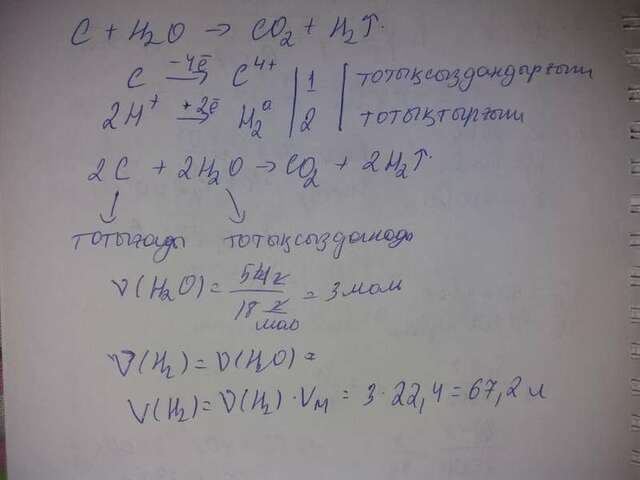 C + H2O → CO2 + H2↑.
C −4ē→ C4+ | 1 | тотықсыздандырғыш
2H+ +2ē→ H2o | 2 | тотықтырғыш
2C + 2H2O → CO2 + 2H2↑.
тотығады тотықсызданады
ν(H2O) = 54г / 18 г/моль = 3 моль
ν(H2) = ν(H2O) =
V(H2) = ν(H2) · VM = 3 · 22,4 = 67,2 л